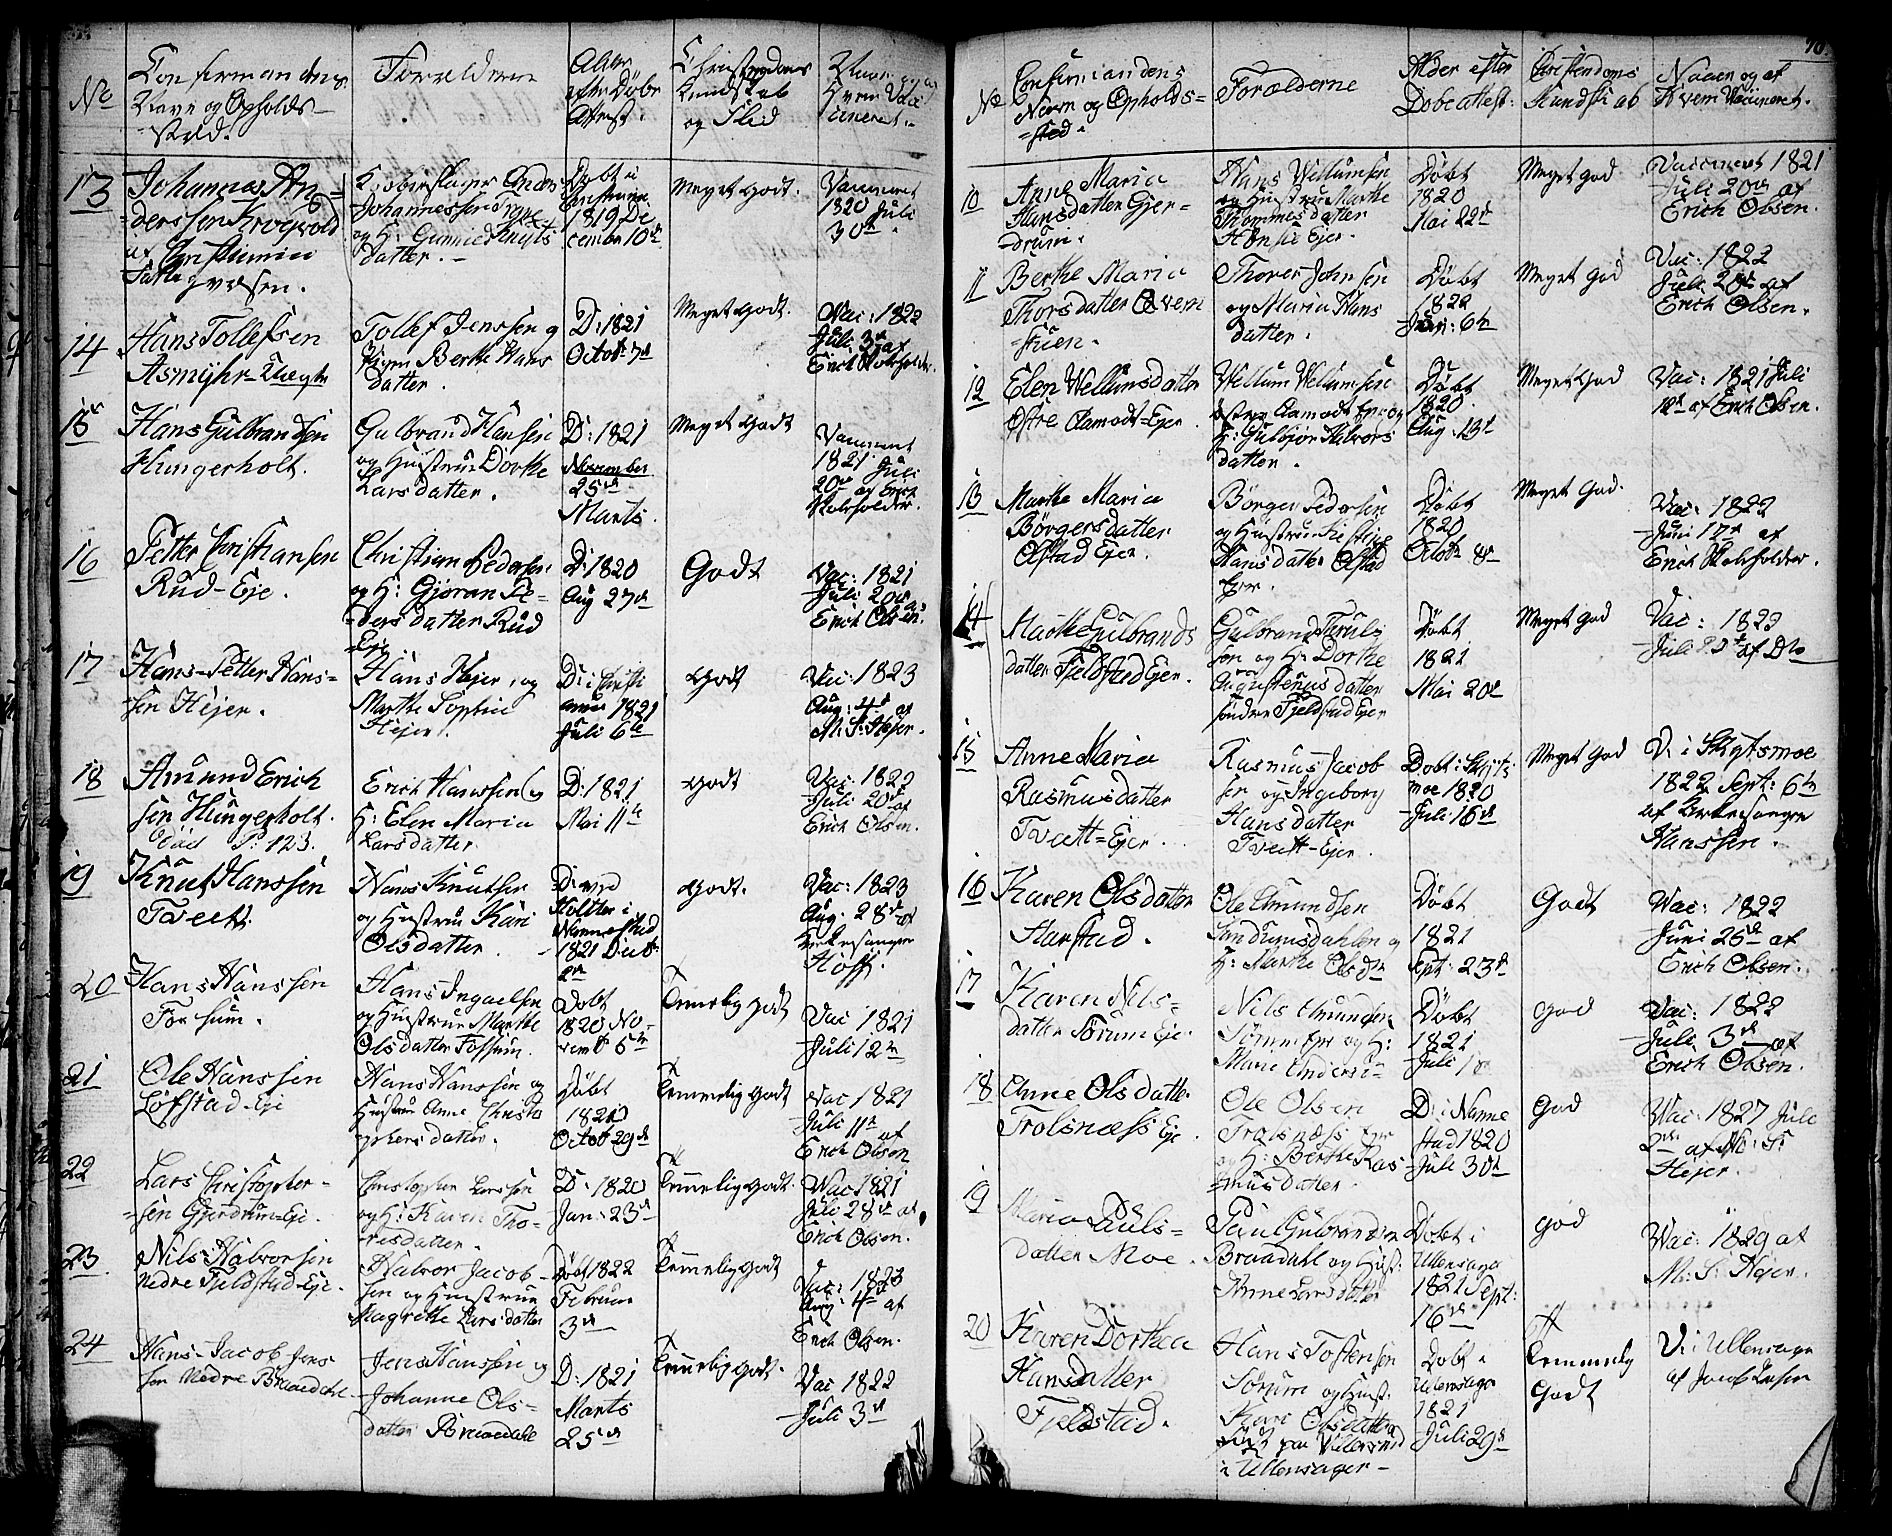 No
Confirmandens
Navn og Opholds-
Sted.
Forældrene
Alder
efter Døbe
Attest.
Christendoms
Kundskab
og Flid
13
Johannes An=
=derssen Krogvold
af Christiania
Fattigvæsen.
Johannessen
og H: Gunnild Knuts
datter. -
Døbt i
1819 De
cember 10de
Meget Godt.
Vaccineret
1820 Juli
30te
14
Hans Tollefsen
Asmyhr
Tollef Jenssen og
Berthe Hans
datter.
D: 1821
Octob 7de
Meget Godt.
Vac: 1822
Juli 3de af
Erich
15
Hans Gulbrandsen
Hungerholt.
Gulbrand Hansen
og Hustrue Dorthe
Larsdatter.
D: 1821
November
25de
Marts.
Meget Godt
Vaccineret
1821 Juli
20de af Erich
16
Petter Christiansen
Rud-Eje.
Christian Pedersen
og H: Gjøran Pe-
dersdatter Rud
Eje
D: 1820
Aug 27de
Godt
Vac: 1821
Juli 20de af
Erich Olsen.
17
Hans-Petter Hans=
sen Hejer.
Hans Hejer, og
Marthe Sophie
Hejer.
D: i Christi
ania 1821
Juli 6te
Godt
Vac: 1823
Aug: 4de af
M. S. Hejer.
18
Amund Erich
sen Hungerholt.
P: 123.
Erich Hanssen og
H: Elen Maria
Larsdatter.
D: 1821
Mai 11te
Godt
Vac: 1822
Juli 20de af
Erich Olsen.
19
Knut Hanssen
Tveit
Hans Knutsen
og Hustrue Kari
Olsdatter.
D: ved
Holter i
Nannestad
1821
Godt.
Vac: 1823
Aug. 28de af
Kirkesanger
Hoff.
20
Hans Hanssen
Fossum.
Hans Ingvelsen
og Hustrue Marthe
Olsdatter Fossum.
Døbt
1820 No-
vemb 5te
Temmelig Godt
Vac 1821
Juli 12te
21
Ole Hanssen
Løfstad-Eje
Hans Hanssen og
Hustrue Anne Christo
phersdatter.
Døbt
1820
Octob 29de
Temmelig Godt
Vac 1821
Juli 11te af
Erich Olsen
22
Lars Christopher-
sen Gjerdrum-Eje.
Christopher Larssen
og H: Karen Tho-
resdatter.
D: 1820
Jan: 23de
Temmelig Godt.
Vac 1821
Juli 28de af
Erich Olsen.
23
Nils Halvorsen
Nedre Fjeldstad-Eje.
Halvor Jacob-
sen og Hustrue
Magrethe Larsdatter
Døbt 1822
Februar
3de
Temmelig Godt
Vac: 1823
Aug: 4de af
Erich Olsen.
24
Hans-Jacob Jens
sen Nedre Braadahl.
Jens Hanssen og
Johanne Ols-
datter Braadahl
D: 1821
Marts
25de
Temmelig Godt.
Vac 1822
Juli 3de
70.
No
Confirmandens
Navn og Opholds=
=sted.
Forælderne
Alder efter
Dobeattest:
Christendoms
Kundskab
Naar og af
Hvem Vaccineret.
10
Anne Maria
Hansdatter Gjer=
drum.
Hans Vellumsen
og Hustrue Marthe
Thommesdatter
Døbt
1820
Mai 22de
Meget God
Vaccineret 1821
Juli 20de af
Erich Olsen.
11
Berthe Maria
Thorsdatter Qvern
Thorer Johnsen
og Maria Hans
datter.
Døbt
1822
Jan: 6te
Meget God
Vac: 1822
Juli 20de af
Erich Olsen.
12
Elen Vellumsdatter
Østre Aamodt-Ejer
Vellum Vellumsen
østre Aamodt Ejer og
H: Gulbjør Halvors
datter.
Døbt
1820.
Aug. 13de
Meget God
Vac: 1821 Juli
12te af Erich Olsen.
13
Marthe Maria
Børgersdatter
Olstad Ejer.
Børger Pedersen
og Hustrue Kirstine
Hansdatter Olstad
Ejer.
Døbt
1820
Octob. 8de
Meget God.
Vac: 1822
Juni 17de af
Erich
14
Marthe Gulbrands
datter Fjeldstad Ejer.
Gulbrand Truls
sen og H: Dorthe
Augustenus datter
søndre Fjeldstad Ejer
Døbt
1821
Mai 20de
Meget God
Vac: 1822
Juli 23de af Dto
15
Anne Maria
Rasmusdatter
Tveit=Ejer.
Rasmus Jacob
sen og Ingeborg
Hansdatter
Tveit-Ejer.
Dobt i Skjets
moe 1820
Juli 16de
Meget God
V: i Skjetsmoe
1822 Sept: 6te
af Kirkesanger
Hanssen.
16
Karen Olsdatter
Harstad.
Ole Amundsen
og
H: Marthe Olsdtr
Døbt
1821
Sept: 23de
Godt
Vac: 1822
Juni 25de af
Erich Olsen.
17
Karen Nils=
datter Sørum Eje.
Nils Amundsen
og H:
Marie Anders
Døbt
1821
Juli 1ste
God
Vac: 1822
Juli 3de af
Erich Olsen.
18
Anne Olsdatter
Trolsnæss Eje.
Ole Olsen
Trolsnæss
og H: Berthe Ras
=musdatter.
D: i Nanne
stad 1820
Juli 30te
God
Vac: 1827 Juli
2den af M: S:
Hejer.
19
Maria Pauls=
datter Moe.
Paul Gulbrandsen
Braadahl og Hust.
Anne Larsdatter
Dobt i
Ullensager
1821 Sept:
16de
God
Vac: 1829 af
M: S: Hejer.
20
Karen Dorthea
Hansdatter
Fjeldstad.
Hans Tostensen
Sørum og Hust.
Kari Olsdatter
i Ullensager -
Dobt i
Ullensager
1821
Juli 29de
Temmelig
Godt
V: i Ullensager
af Jacob